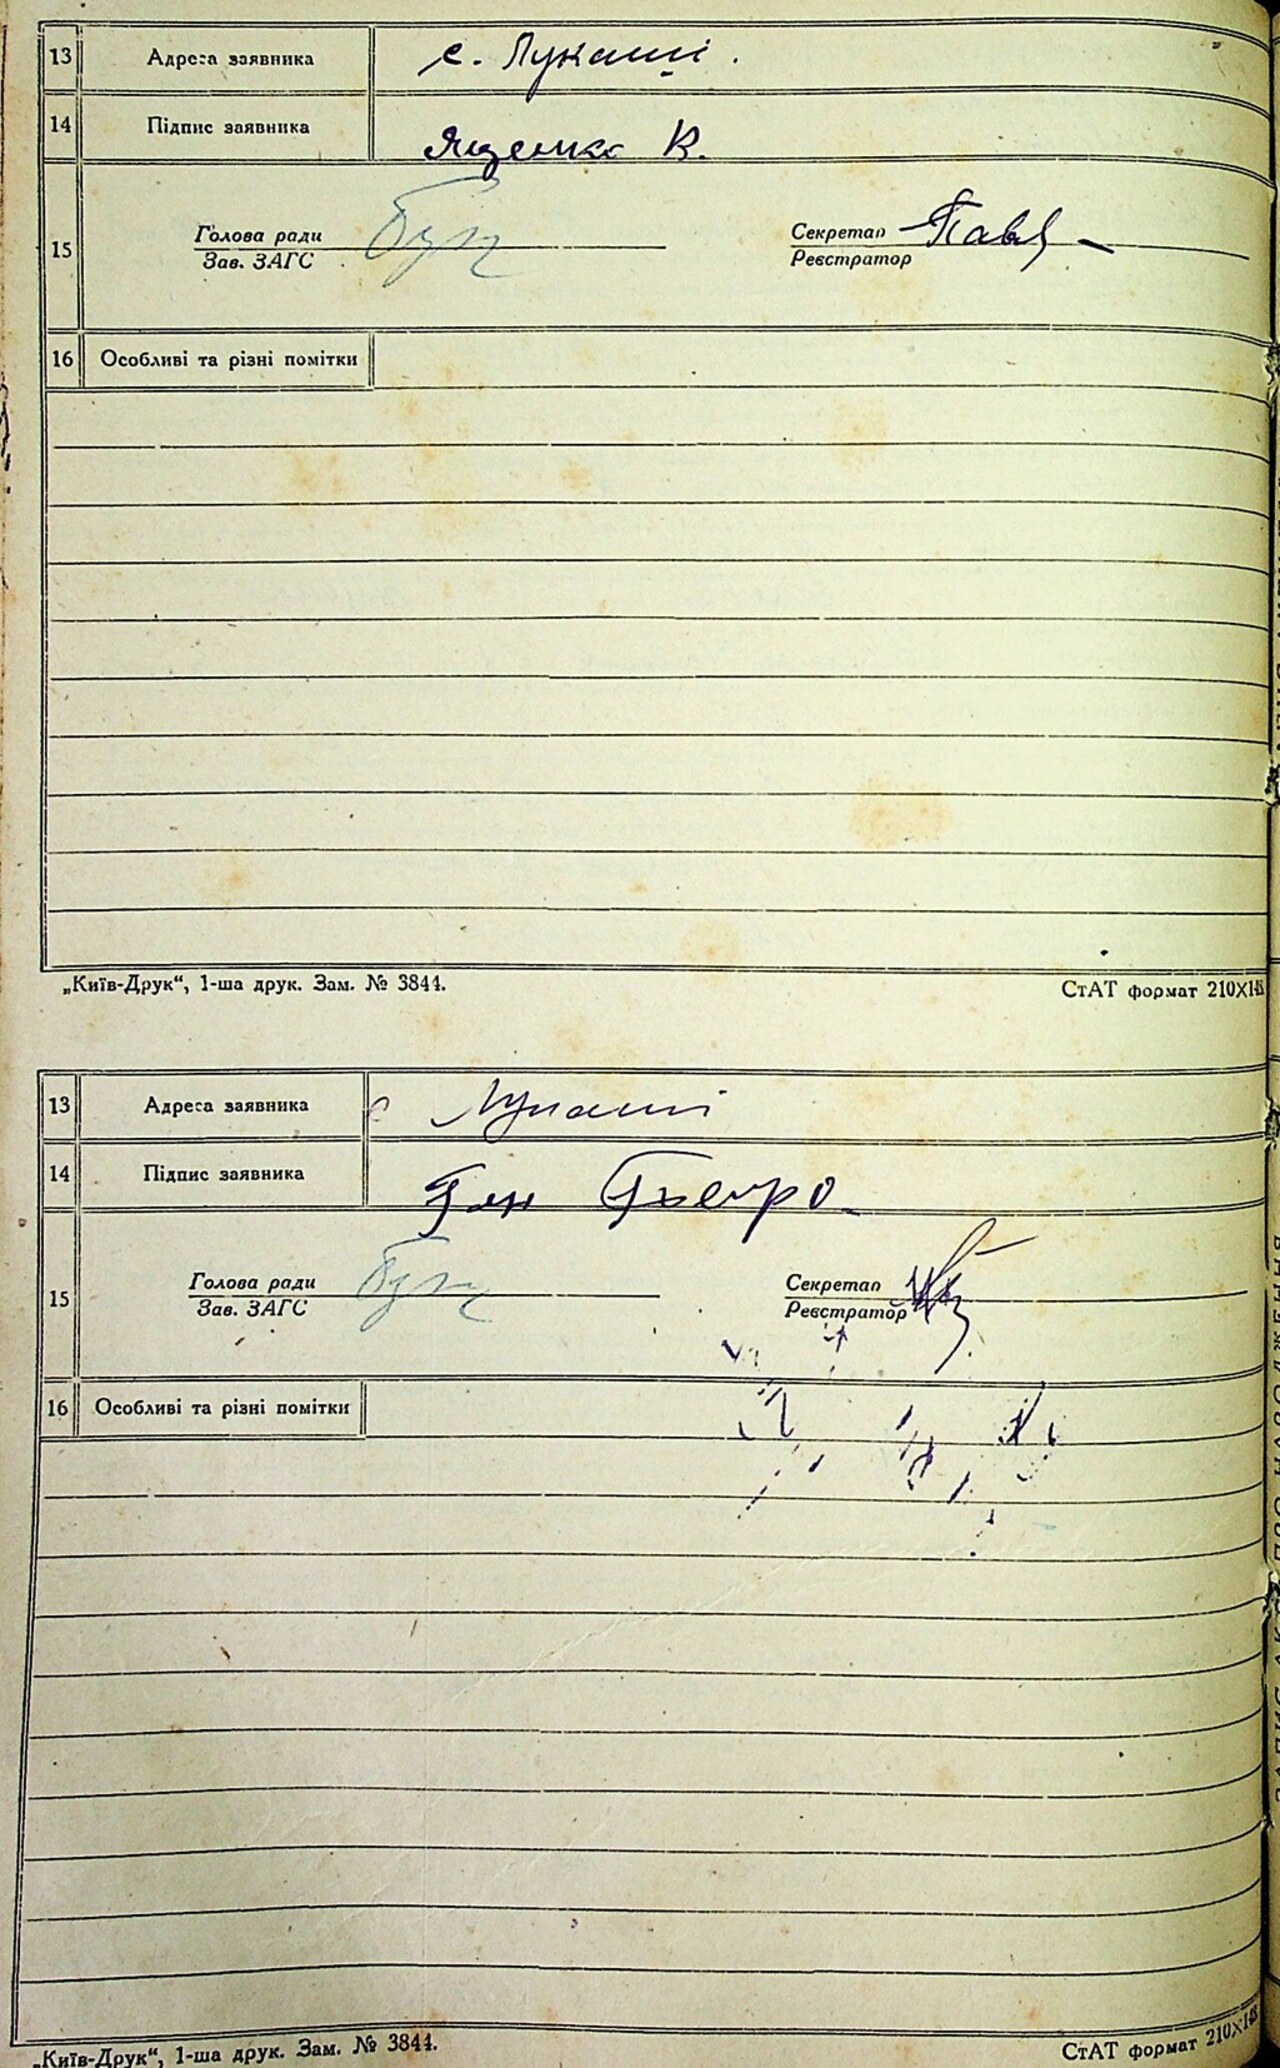 13 Адреса заявника с. Лукаші.
14 Підпис заявника Ященко В.
15 Голова ради Секретар
Зав. ЗАГС Реєстратор
16 Особливі та різні помітки
„Київ-Друк“, 1-ша друк. Зам. № 3844. СтАТ формат 210X148
13 Адреса заявника с Лукаші
14 Підпис заявника
15 Голова ради Секретар
Зав. ЗАГС Реєстратор
16 Особливі та різні помітки
„Київ-Друк“, 1-ша друк. Зам. № 3844. СтАТ формат 210X148